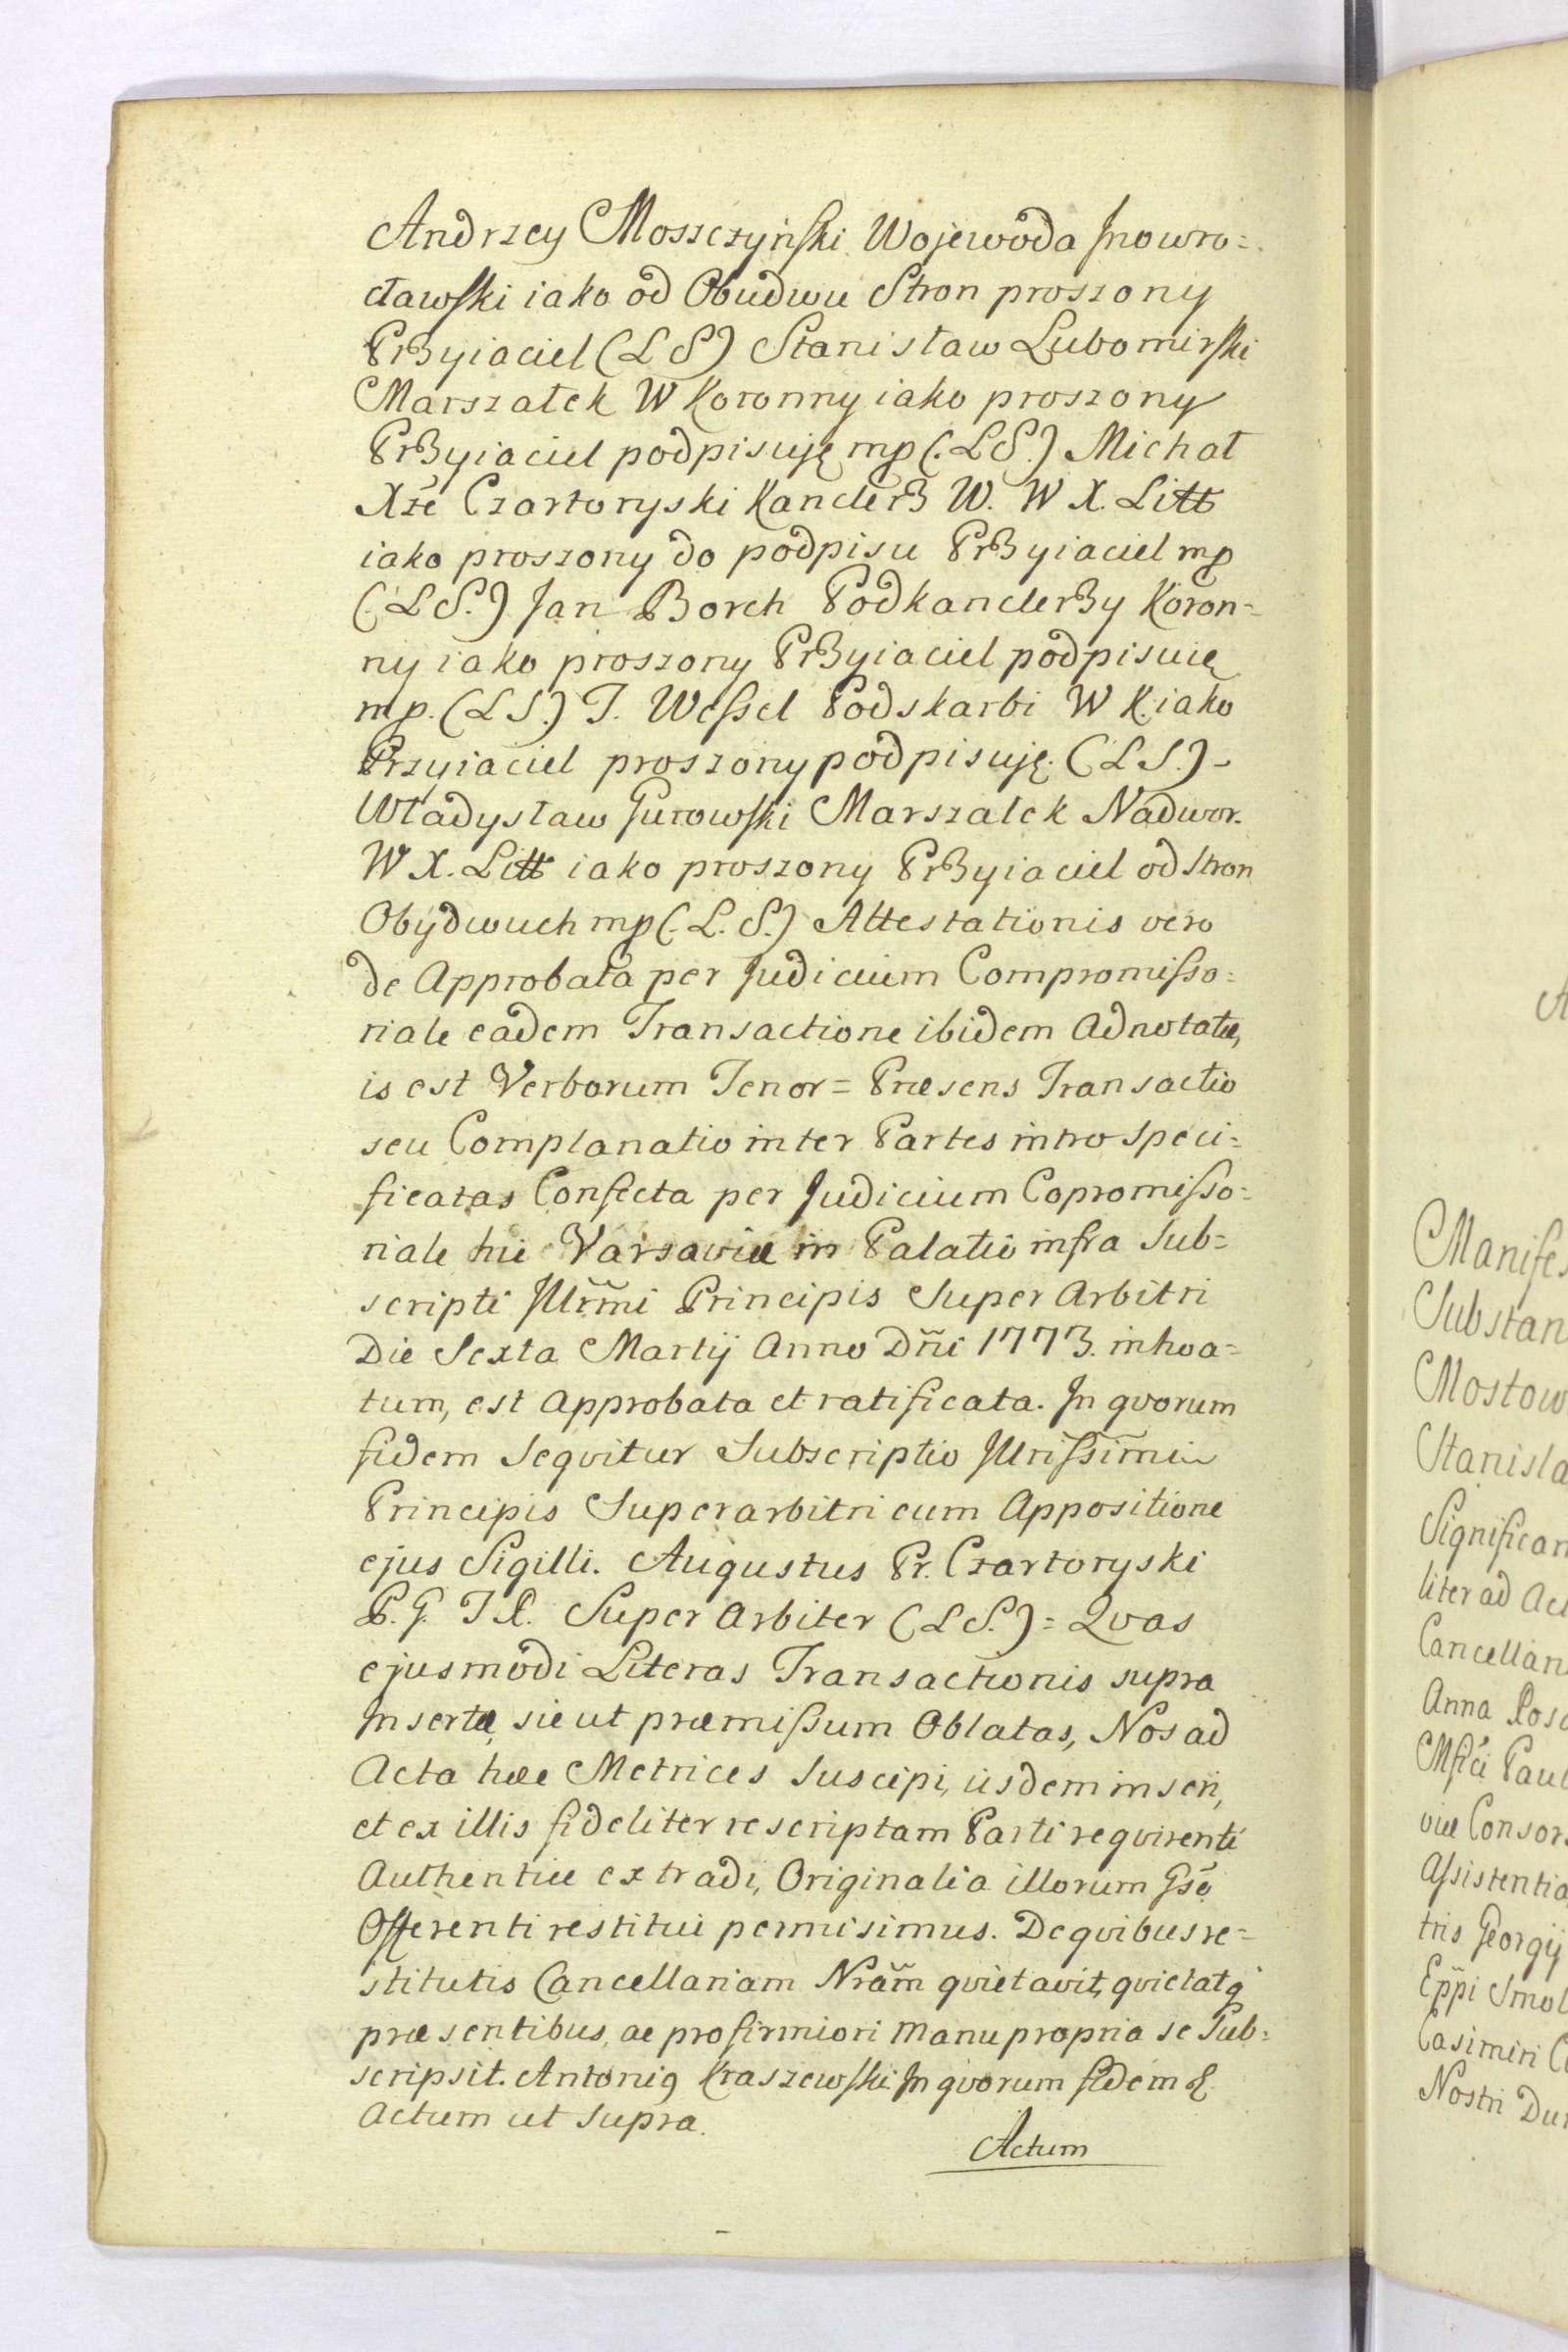 Andrzey Moszczyński Wojewoda Jnowro=
cławski iako od Obudwu Stron proszony
Przyiaciel (L S) Stanisław Lubomirski
Marszałek W Koronny iako proszony
Przyiaciel podpisuję mp (. L S.) Michał
Xże Czartoryski Kanclerz W. W X. Litt
iako proszony do podpisu Przyiaciel mp
(. L S.) Jan Borch Podkanclerzy Koron=
ny iako proszony Przyiaciel podpisuię
mp. (L S.) T. Wessel Podskarbi W K. iako
Przyiaciel proszony podpisuję. (L S.) -
Władysław Gurowski Marszałek Nadwor.
W X. Litt iako proszony Przyiaciel od Stron
Obydwuch mp (. L. S.) Attestationis vero
de Approbata per Judicium Compromisso=
riale eadem Transactione ibidem Adnotatæ,
is est Verborum Tenor = Præsens Transactio
seu Complanatio inter Partes intro Speci=
ficatas Confecta per Judicium Copromisso=
riale hic Varsaviæ in Palatio infra Sub=
scripti Jllr̃mi Principis Super Arbitri
Die Sexta Martij Anno Dñi 1773. inhoa=
tum, est Approbata et ratificata. Jn qvorum
fidem Seqvitur Subscriptio Jllrissimi
Principis Superarbitri cum Appositione
ejus Sigilli. Augustus Pr. Czartoryski
P. G. T R. Super Arbiter (L S.) = Qvas
ejusmodi Literas Transactionis supra
Jnsertæ, sicut præmissum Oblatas, Nos ad
Acta hæc Metrices Suscipi, iisdem inseri,
et ex illis fideliter rescriptam Parti reqvirenti
Authentice extradi, Originalia illorum Gsõ
Offerenti restitui permisimus. De qvibus re=
stitutis Cancellariam Nrãm qvietavit, qvietatq
præsentibus, ac pro firmiori Manu propria se Sub=
scripsit. Antoni9 Kraszewski. Jn qvorum fidem &
Actum ut Supra.
Actum
Manifes
Substan
Mostow
Stanisla
Significan
liter ad Act
Cancellari
Anna Rosa
Mfici Paul
viæ Consor
Assistentia
tris Georgij
Epp̃i Smol
Casimiri C
Nostri Du